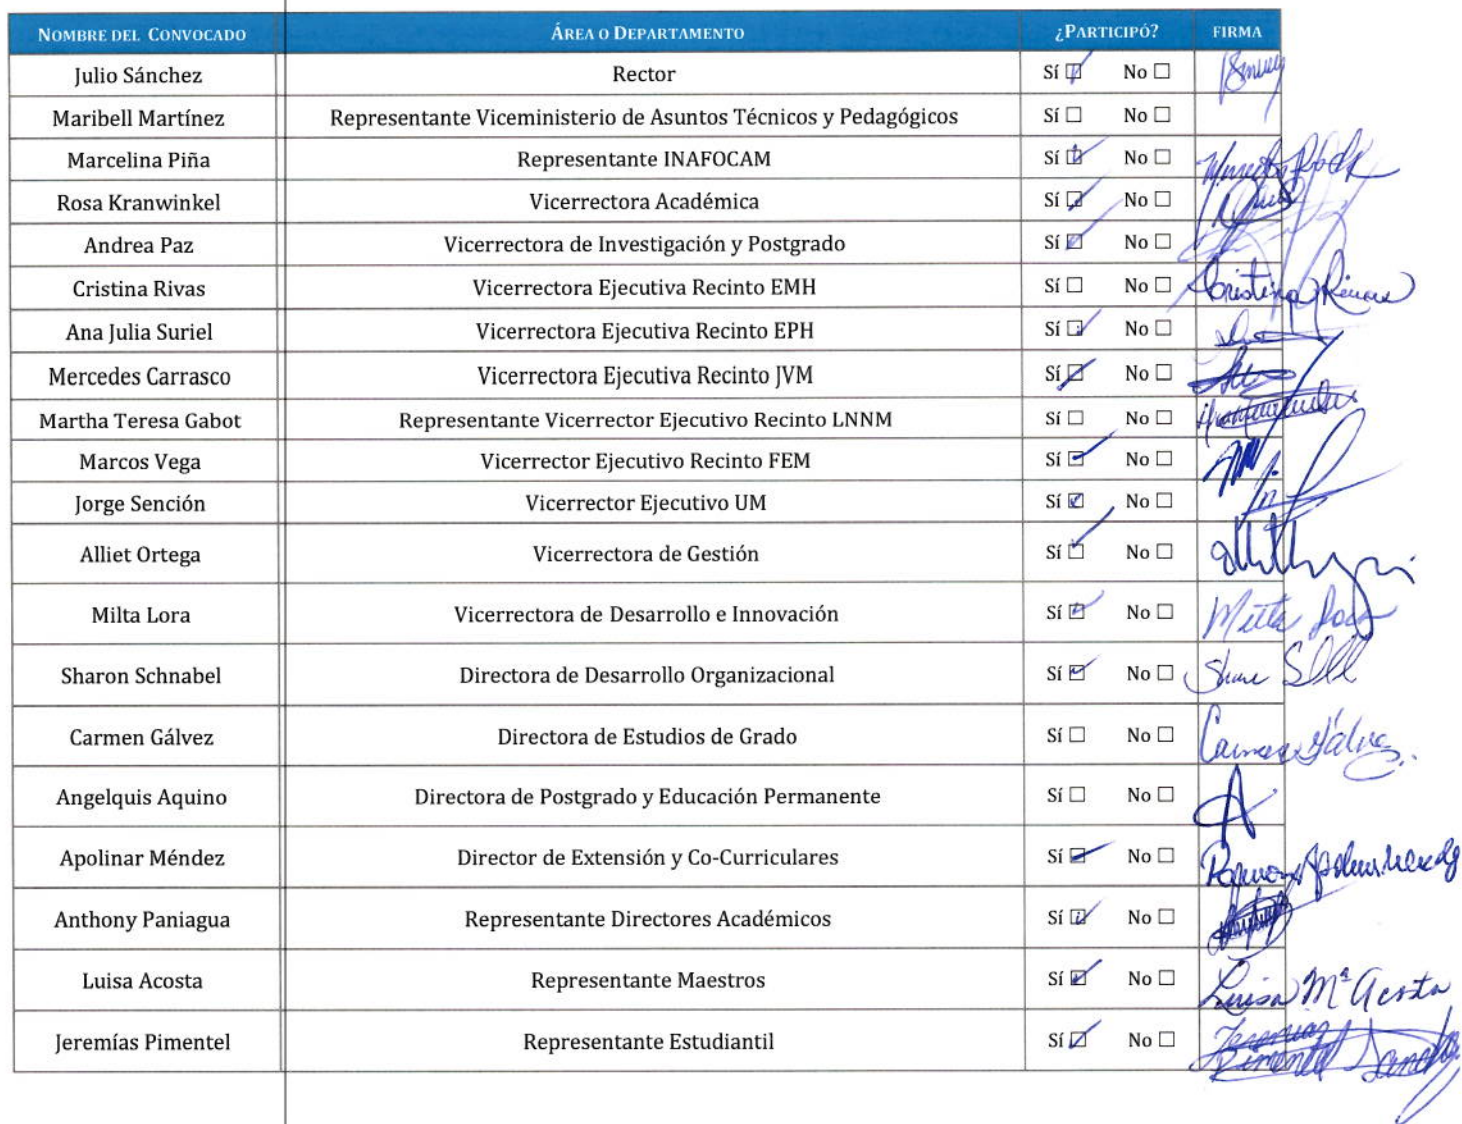 NOMBRE DEL CONVOCADO ÁREA O DEPARTAMENTO ¿PARTICIPÓ? FIRMA
Julio Sánchez Rector Sí No
Maribell Martínez Representante Viceministerio de Asuntos Técnicos y Pedagógicos Sí No
Marcelina Piña Representante INAFOCAM Sí No
Rosa Kranwinkel Vicerrectora Académica Sí No
Andrea Paz Vicerrectora de Investigación y Postgrado Sí No
Cristina Rivas Vicerrectora Ejecutiva Recinto EMH Sí No Cristina Rivas
Ana Julia Suriel Vicerrectora Ejecutiva Recinto EPH Sí No
Mercedes Carrasco Vicerrectora Ejecutiva Recinto JVM Sí No
Martha Teresa Gabot Representante Vicerrector Ejecutivo Recinto LNNM Sí No
Marcos Vega Vicerrector Ejecutivo Recinto FEM Sí No
Jorge Sención Vicerrector Ejecutivo UM Sí No
Alliet Ortega Vicerrectora de Gestión Sí No
Milta Lora Vicerrectora de Desarrollo e Innovación Sí No Milta Lora
Sharon Schnabel Directora de Desarrollo Organizacional Sí No
Carmen Gálvez Directora de Estudios de Grado Sí No Carmen Gálvez
Angelquis Aquino Directora de Postgrado y Educación Permanente Sí No
Apolinar Méndez Director de Extensión y Co-Curriculares Sí No Ramon Apolinar Mendez
Anthony Paniagua Representante Directores Académicos Sí No
Luisa Acosta Representante Maestros Sí No Luisa Mª Acosta
Jeremías Pimentel Representante Estudiantil Sí No Jeremias
Pimentel Sanchez